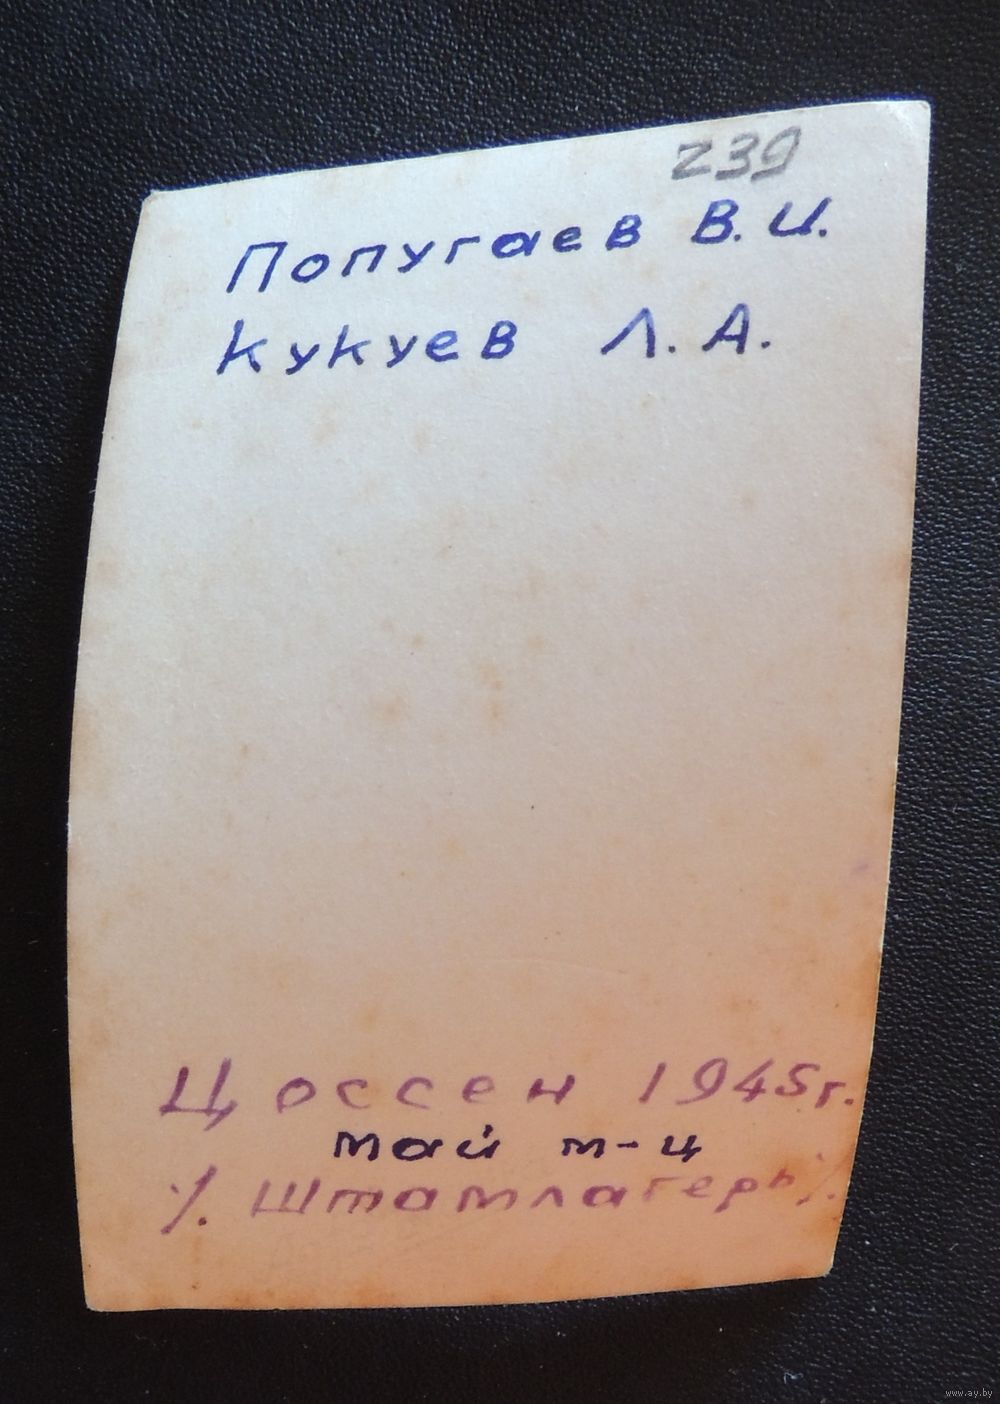 239
Попугаев В. И.
Кукуев Л. А.
Цоссен 1945г.
май м-ц
/. Штамлагерь/.
www.ay.by